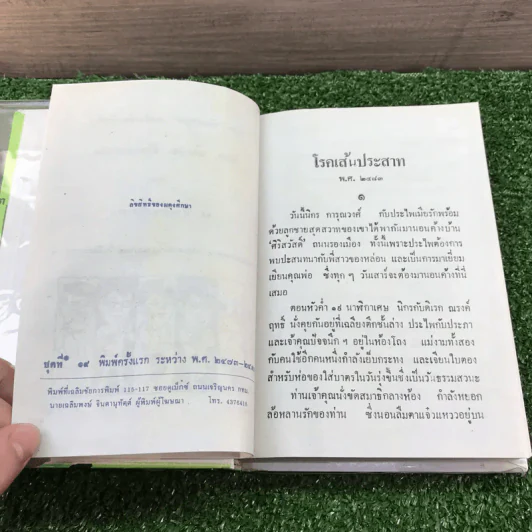 ลิขสิทธิ์ของผดุงศึกษา
ชุดที่ ๑๙ พิมพ์ครั้งแรก ระหว่าง พ.ศ. ๒๔๗๓-๒๔๘
พิมพ์ที่เฉลิมชัยการพิมพ์ 115-117 ซอยอู่เม็กซ์ ถนนเจริญนคร กทม.
นายเฉลิมพงษ์ จินดานุทัศต์ ผู้พิมพ์ผู้โฆษณา โทร. 4376415
โรคเส้นประสาท
พ.ศ. ๒๔๘๓
๑
วันนี้นิกร การุณวงศ์ กับประไพเมียรักพร้อม
ด้วยลูกชายสุดสวาทของเขาได้พากันมานอนค้างบ้าน
“ศิริสวัสดิ์” ถนนรองเมือง ทั้งนี้เพราะประไพต้องการ
พบปะสนทนากับพี่สาวของหล่อน และเป็นการมาเยี่ยม
เยียนคุณพ่อ ซึ่งทุก ๆ วันเสาร์จะต้องมานอนค้างที่นี่
เสมอ
ตอนหัวค่ำ ๑๙ นาฬิกาเศษ นิกรกับดิเรก ณรงค์
ฤทธิ์ นั่งคุยกันอยู่ที่เฉลียงตึกชั้นล่าง ประไพกับประภา
และเจ้าคุณปัจจนึก ๆ อยู่ในห้องโถง แม่งามทั้งสอง
กับคนใช้อีกคนหนึ่งกำลังเย็บกระทง และเจียนใบตอง
สำหรับห่อของใส่บาตรในวันรุ่งขึ้นซึ่งเป็นวันธรรมสวนะ
ท่านเจ้าคุณนั่งขัดสมาธิกลางห้อง กำลังหยอก
ล้อหลานรักของท่าน ซึ่งนอนลืมตาแจ๋วแหววอยู่บน